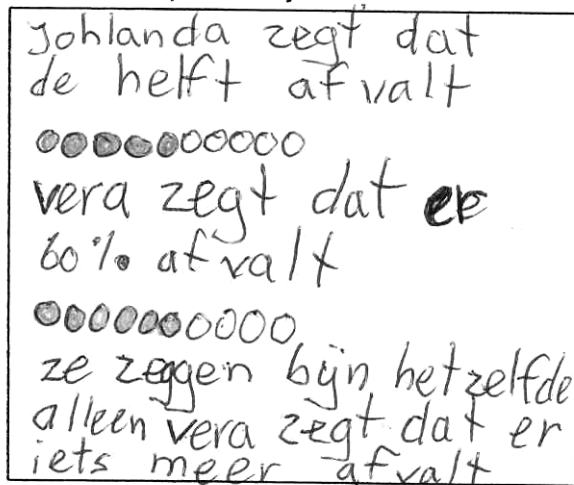 Johlanda zegt dat
de helft afvalt
vera zegt dat er
60% afvalt
ze zeggen bijn hetzelfde
alleen vera zegt dat er
iets meer afvalt